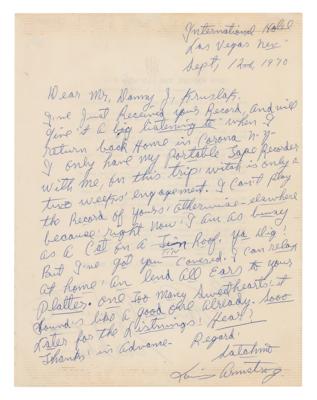 International Hotel
Las Vegas Nev.
Sept, 12nd, 1970
Dear Mr, Danny J,
I've Just Received your Record, And will
give it a big listening to when I
return back Home in Corona N.Y.
I only have my Portable Tape Recorder
With Me, on this trip, witch is only a
two weeps' engagement. I Can't Play
the Record of yours' otherwise-elsewhere
because right now I am as busy
as a Cat on a Tin Roof. Ya Dig!
But I've got you Covered. I Can relax
at home' an' lend All Ears to your
Platter. One Too Many Sweethearts' it
Sounds like a good one Already. Sooo
Later for the Listnings! Hear?
Thanks' in Advance- Regards'
Satchmo
Louis Armstrong